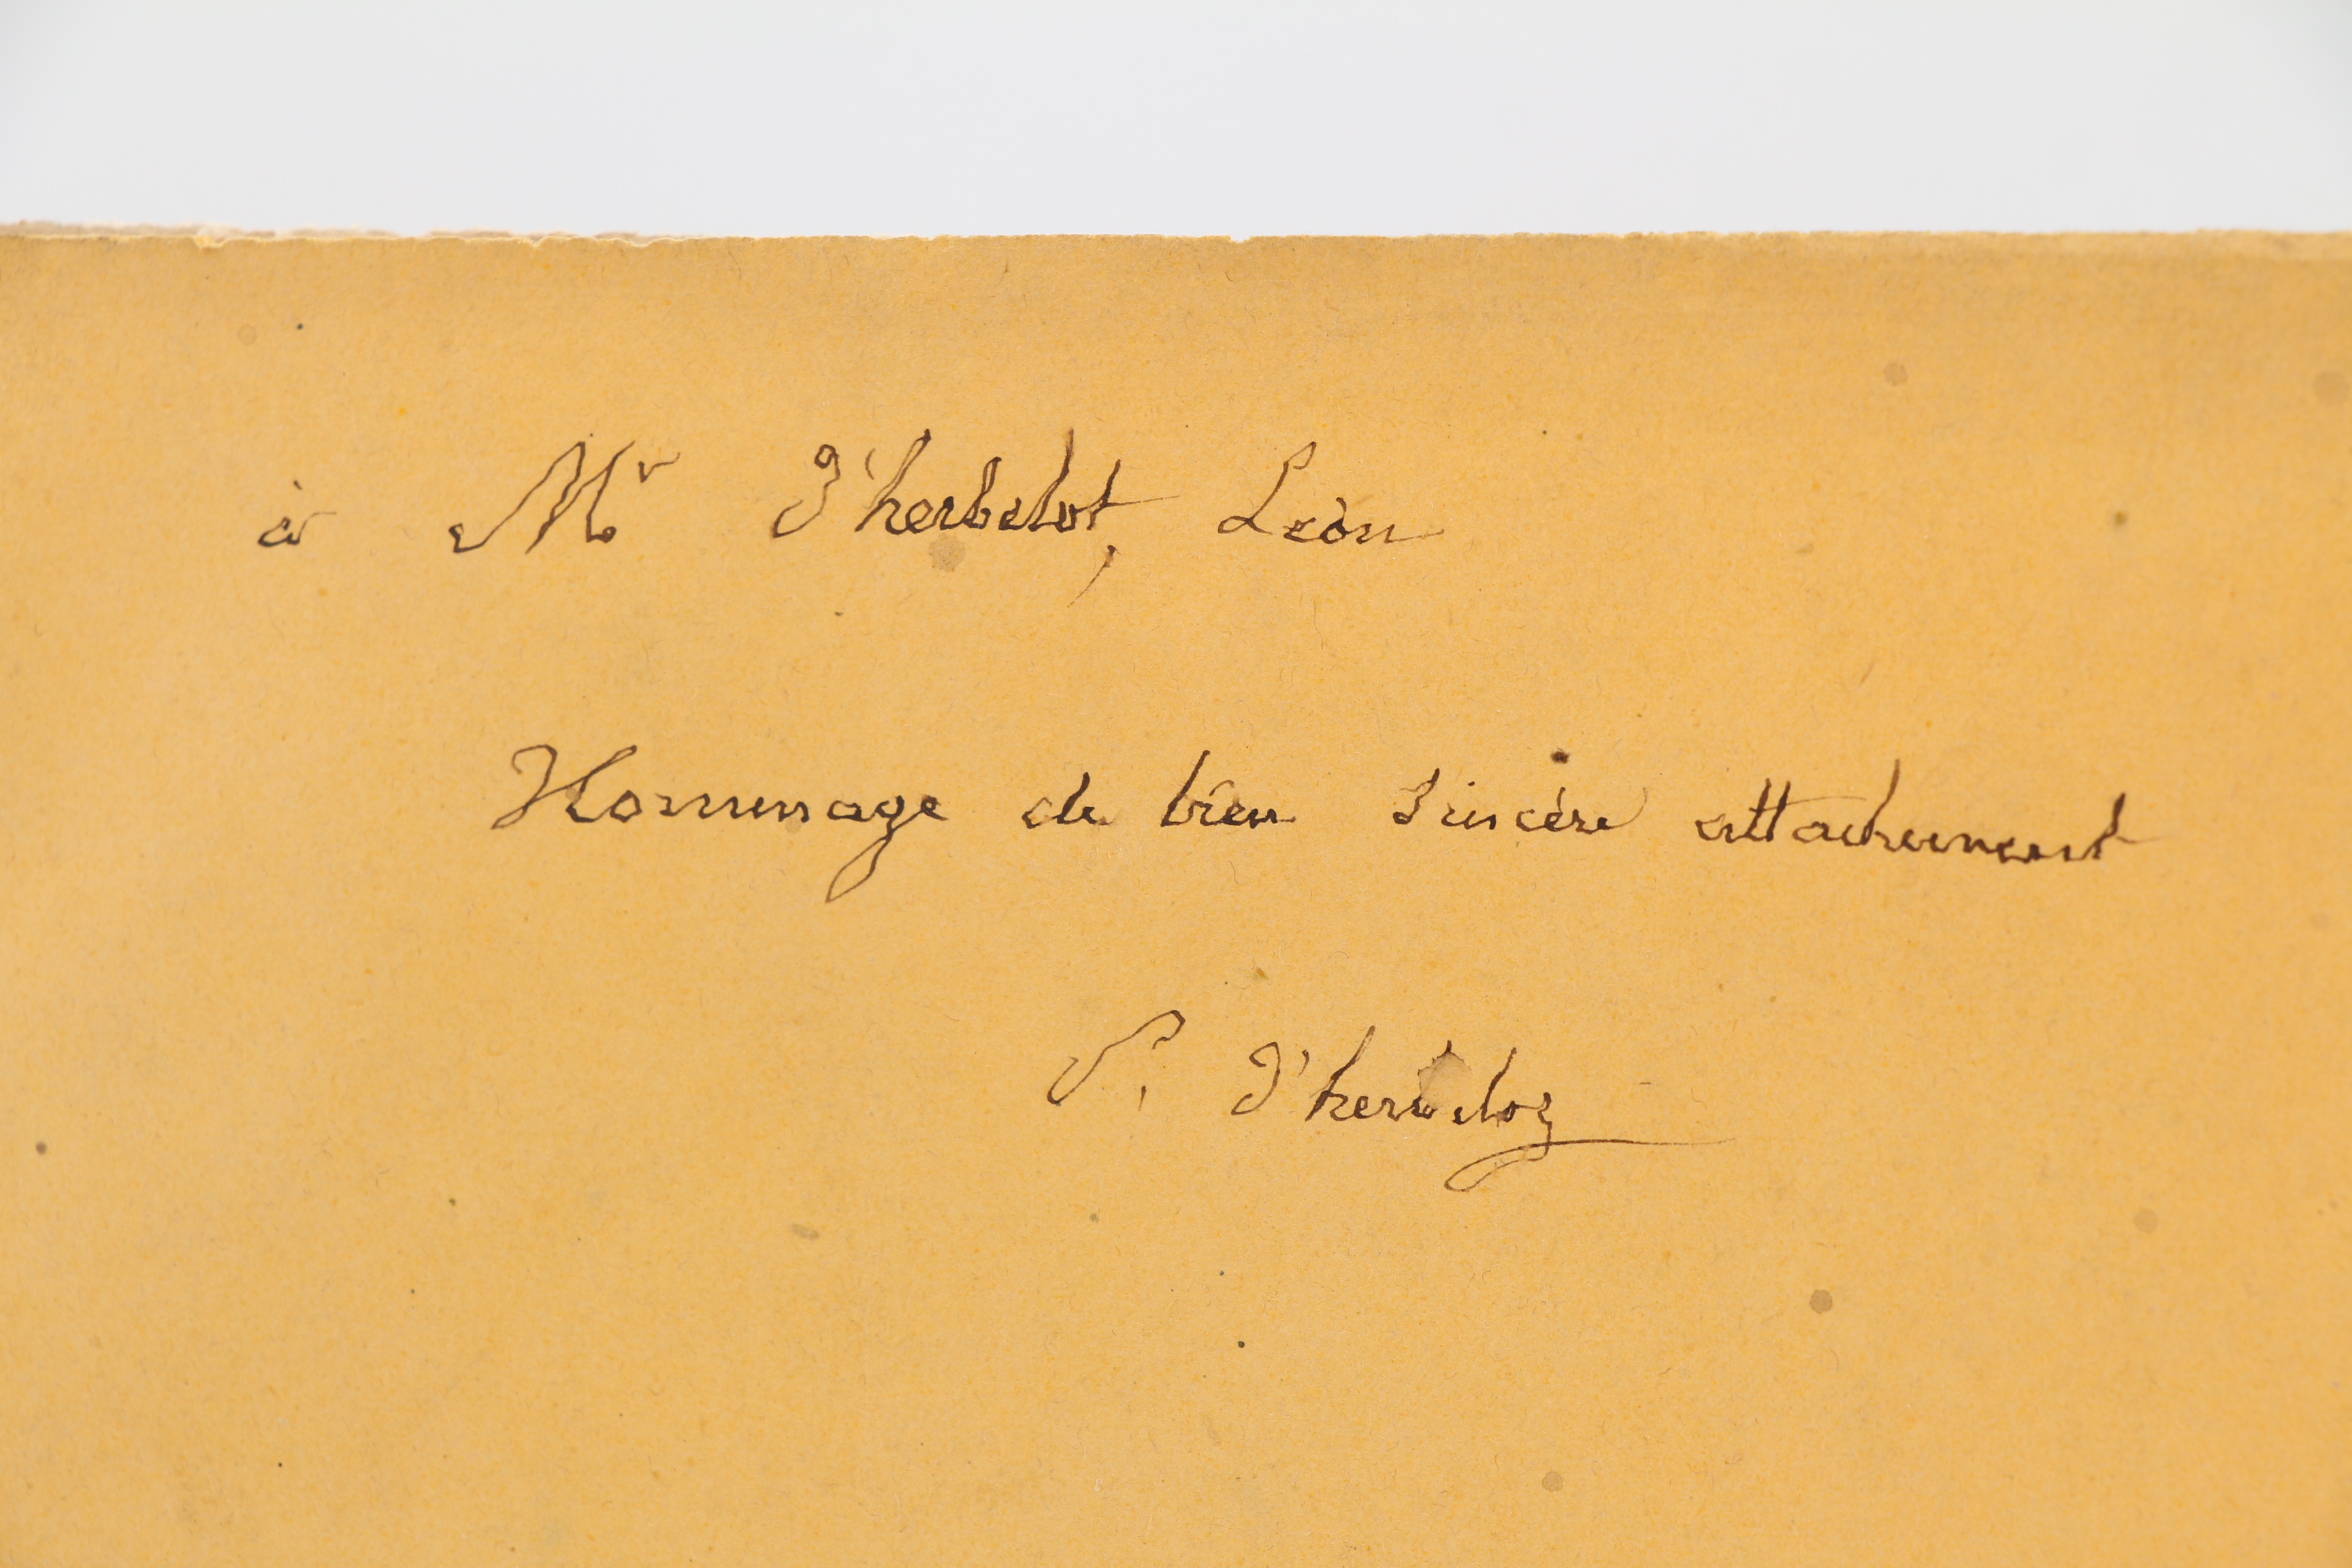 à Mr D'herbelot, Léon
Hommage de bien sincère attachement
P. D'herbelot